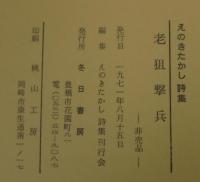 えのきたかし 詩集
老狙撃兵
―非売品―
発行日 一九七一年八月十五日
編集 えのきたかし 詩集刊行会
発行所 冬日書房
豊橋市花園町八一
印刷 桃山工房
岡崎市康生通南一ノ一七